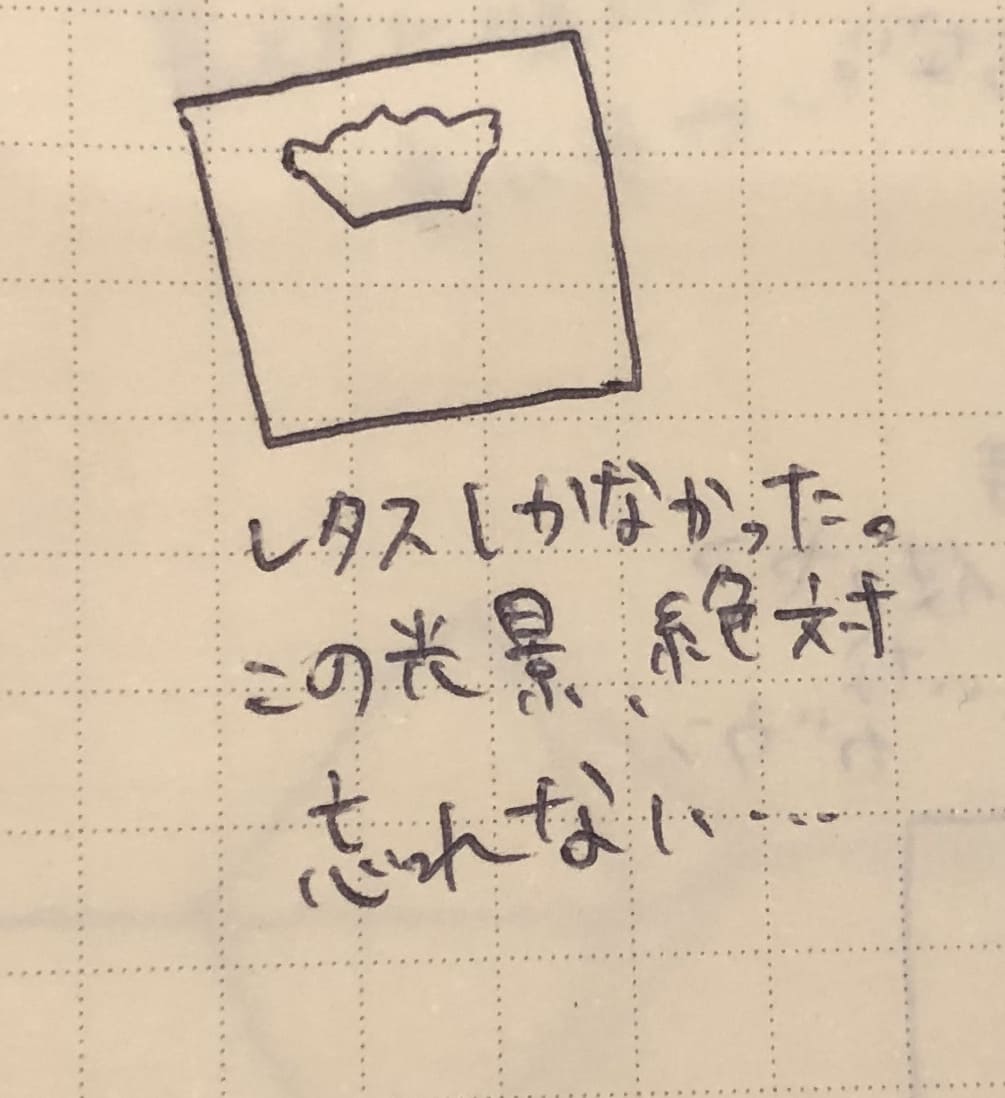 レタスしかなかった。
この光景、絶対
忘れない…